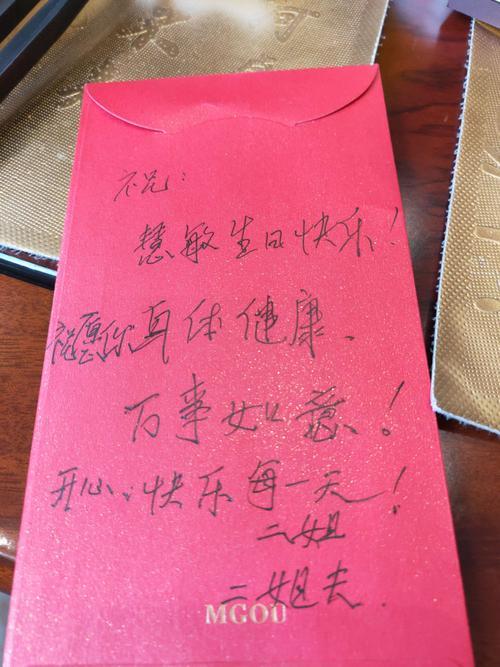 祝:
慧敏生日快乐!
祝愿你身体健康、
万事如意!
开心、快乐每一天!
二姐
二姐夫
MGOU